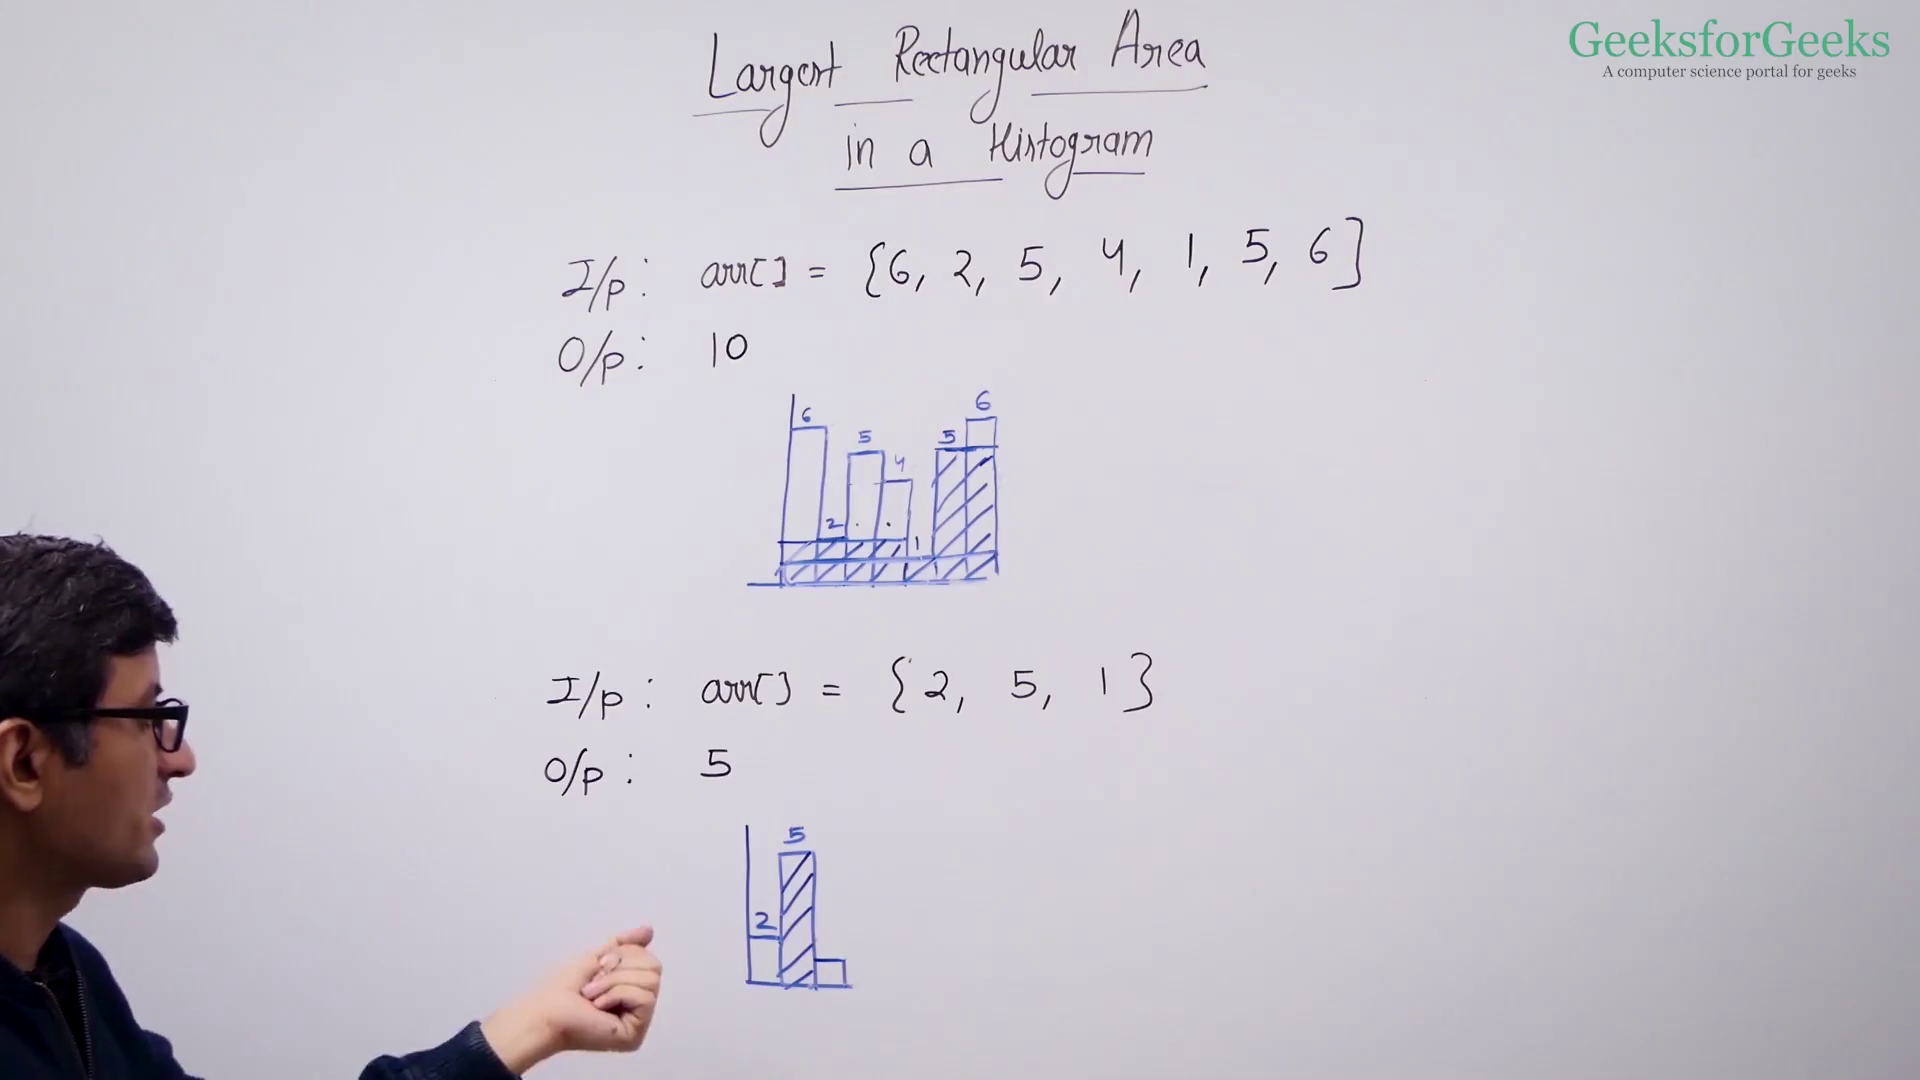 GeeksforGeeks
A computer science portal for geeks
Largest Rectangular Area
in a Histogram
I/p: arr[] = {6, 2, 5, 4, 1, 5, 6}
O/p: 10
6 2 5 4 1 5 6
I/p: arr[] = {2, 5, 1}
O/p: 5
2 5